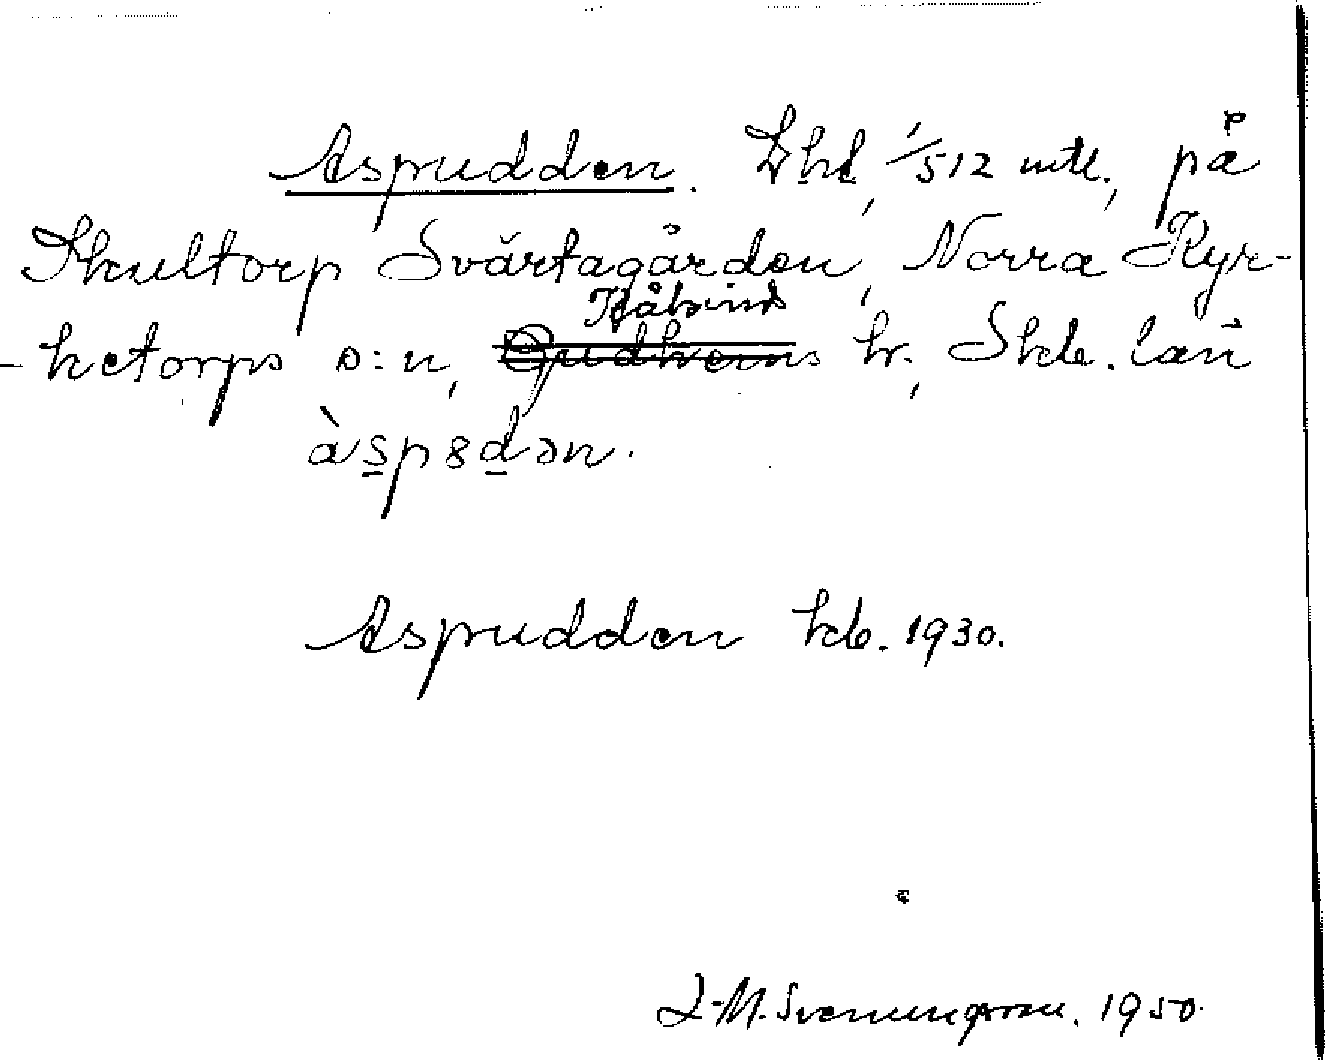 Aspudden. Lhl, 1/512 mtl., på
Skultorp Svärtagården, Norra Kyr-
Kåkinds
-ketorps s:n, Gudhems hr., Skb. län
àspȣdən.
Aspudden kb. 1930.
L-M. Svenungsson. 1950.